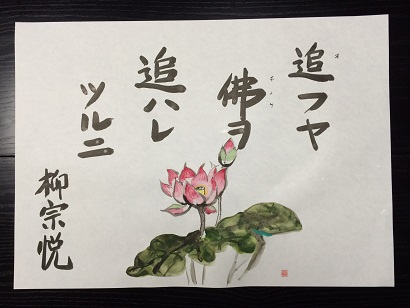 追フヤ
佛ヲ
追ハレ
ツルニ
柳宗悦